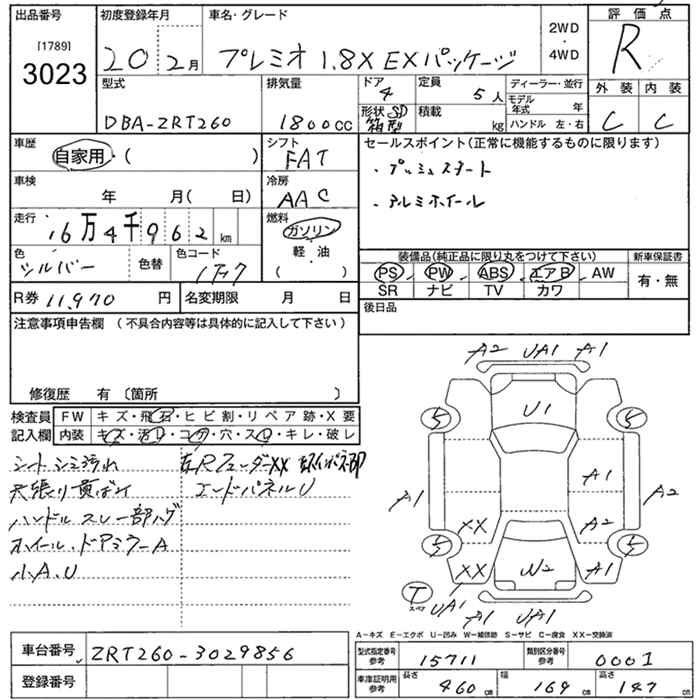 出品番号 初度登録年月 車名・グレード 2WD・4WD 評価点
[1789]
3023 20年2月 プレミオ 1.8X EXパッケージ R
型式 排気量 ドア 4 定員 5人 ディーラー・並行 外装 内装
DBA-ZRT260 1800cc 形状 SD 箱型 積載 kg モデル年式 年 ハンドル 左・右 C C
車歴 自家用・( ) シフト FAT セールスポイント(正常に機能するものに限ります)
・プッシュスタート
車検 年 月( 日) 冷房 AAC ・アルミホイール
走行 16万4千962km 燃料 ガソリン 軽・油 ( )
色 シルバー 色替 色コード 1F7 装備品(純正品に限り丸をつけて下さい) 新車保証書
PS PW ABS エアB AW 有・無
SR ナビ TV カワ
R券 11,970円 名変期限 月 日 後日品
注意事項申告欄 (不具合内容等は具体的に記入して下さい)
修復歴 有 〔箇所 〕
検査員 FW キズ・飛石・ヒビ割・リペア跡・X要
記入欄 内装 キズ・汚レ・コゲ・穴・スレ・キレ・破レ
シートシミ汚れ 左Rフェンダーxx
天張り黄ばみ エンドパネルU
ハンドルスレ一部ハゲ
ホイール・ドアミラーA
小A.U
A2 UA1 A1
5 U1 5
A1 A1 A2
XX A2
5 5
XX W2 A1
T スペア UA1 A1 UA1
A-キズ E-エクボ U-凹み W-補修跡 S-サビ C-腐食 XX-交換済
車台番号 ZRT260-3029856 型式指定番号 参考 15711 類別区分番号 参考 0001
登録番号 車庫証明用 参考 長さ 460cm 幅 169cm 高さ 147cm